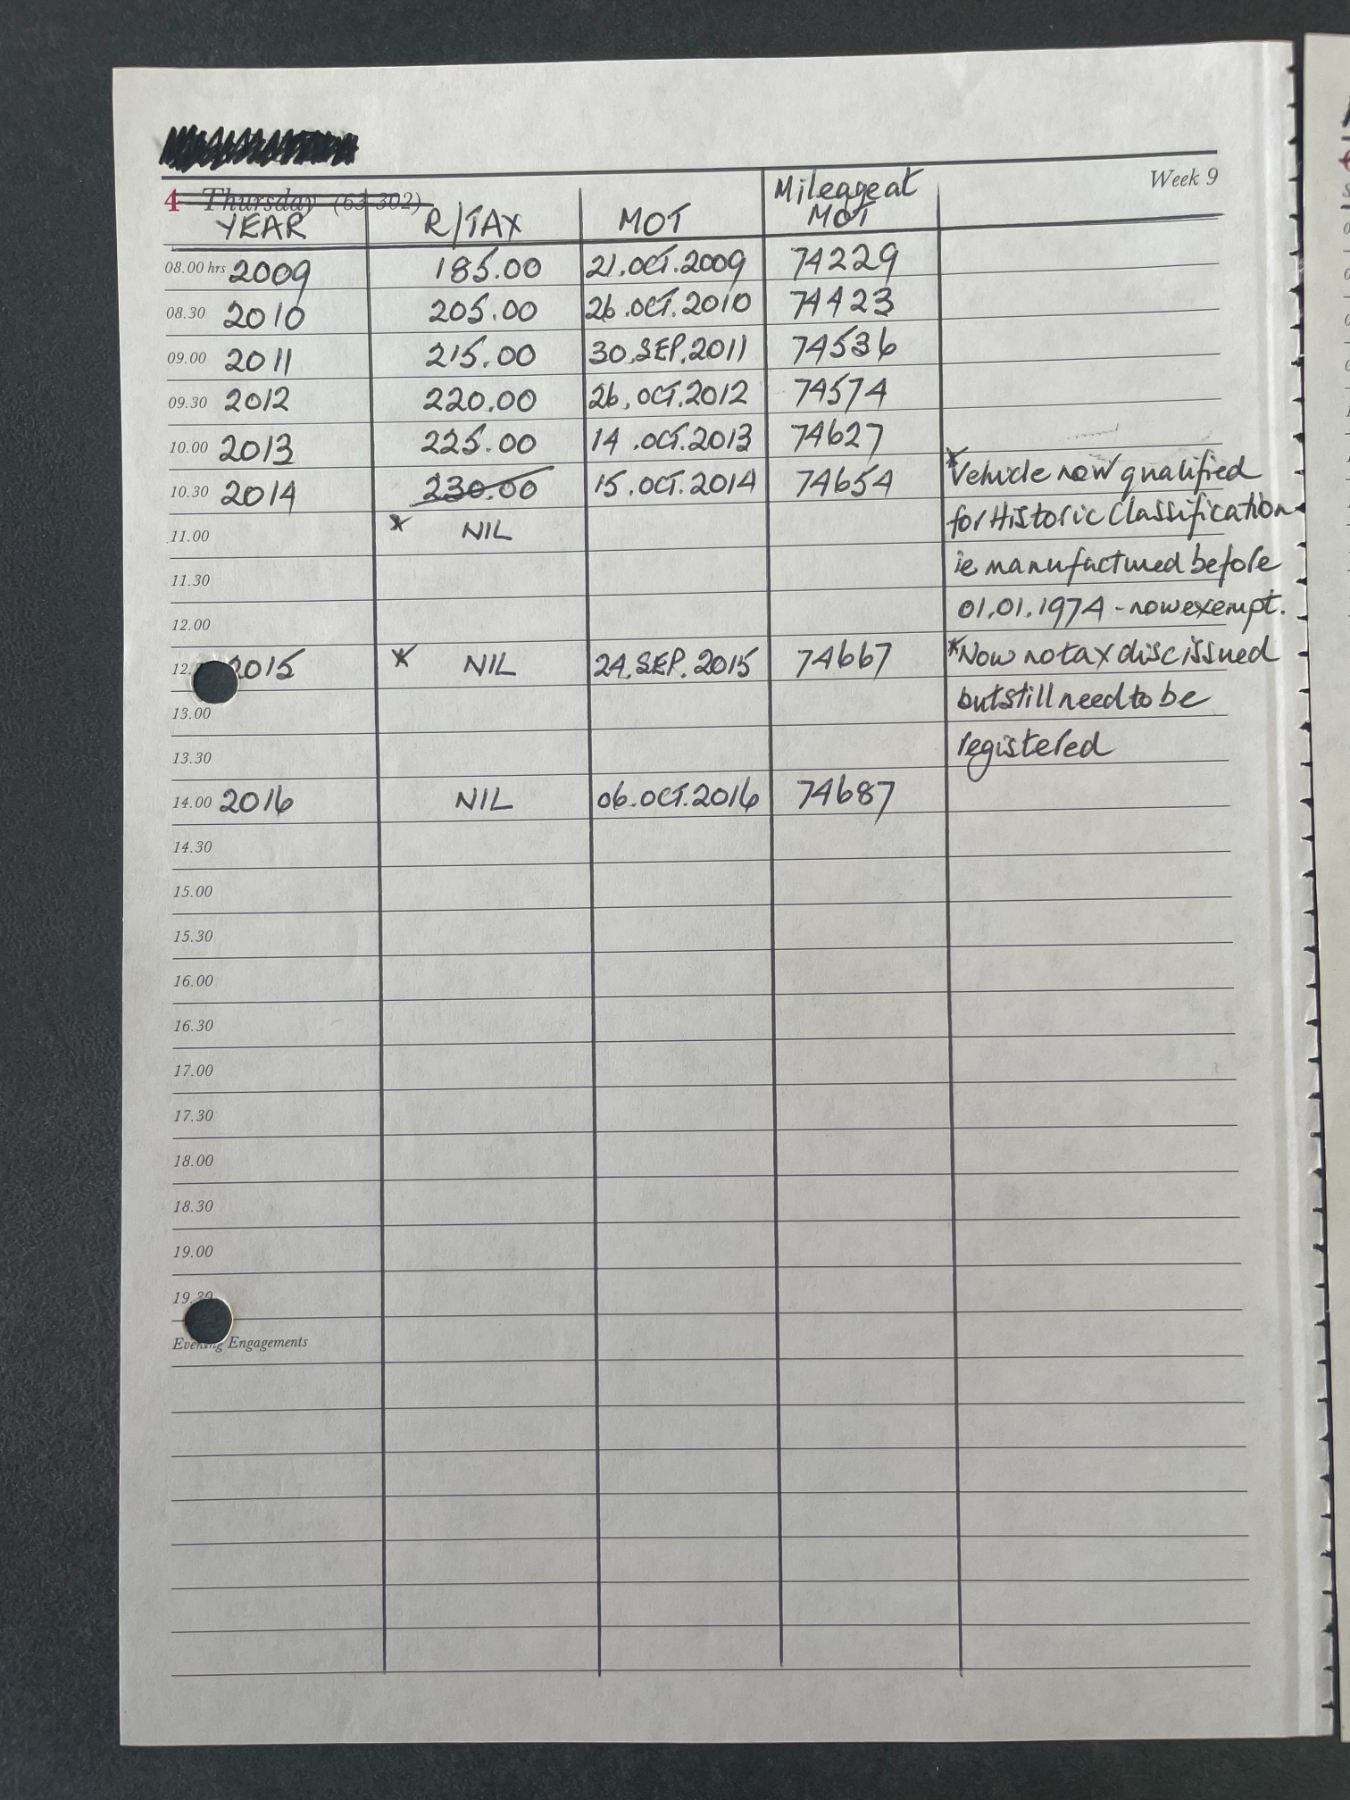 Week 9
4 Thursday (63-302)
Mileage at
YEAR R/TAX MOT MOT
08.00 hrs 2009 185.00 21.OCT.2009 74229
08.30 2010 205.00 26.OCT.2010 74423
09.00 2011 215.00 30.SEP.2011 74536
09.30 2012 220.00 26.OCT.2012 74574
10.00 2013 225.00 14.OCT.2013 74627
10.30 2014 230.00 15.OCT.2014 74654 *Vehicle now qualified
11.00 * NIL for Historic Classification
11.30 ie manufactured before
12.00 01.01.1974 - now exempt.
12. 2015 * NIL 24.SEP.2015 74667 *Now no tax disc issued
13.00 but still need to be
13.30 registered
14.00 2016 NIL 06.OCT.2016 74687
14.30
15.00
15.30
16.00
16.30
17.00
17.30
18.00
18.30
19.00
19.30
Evening Engagements